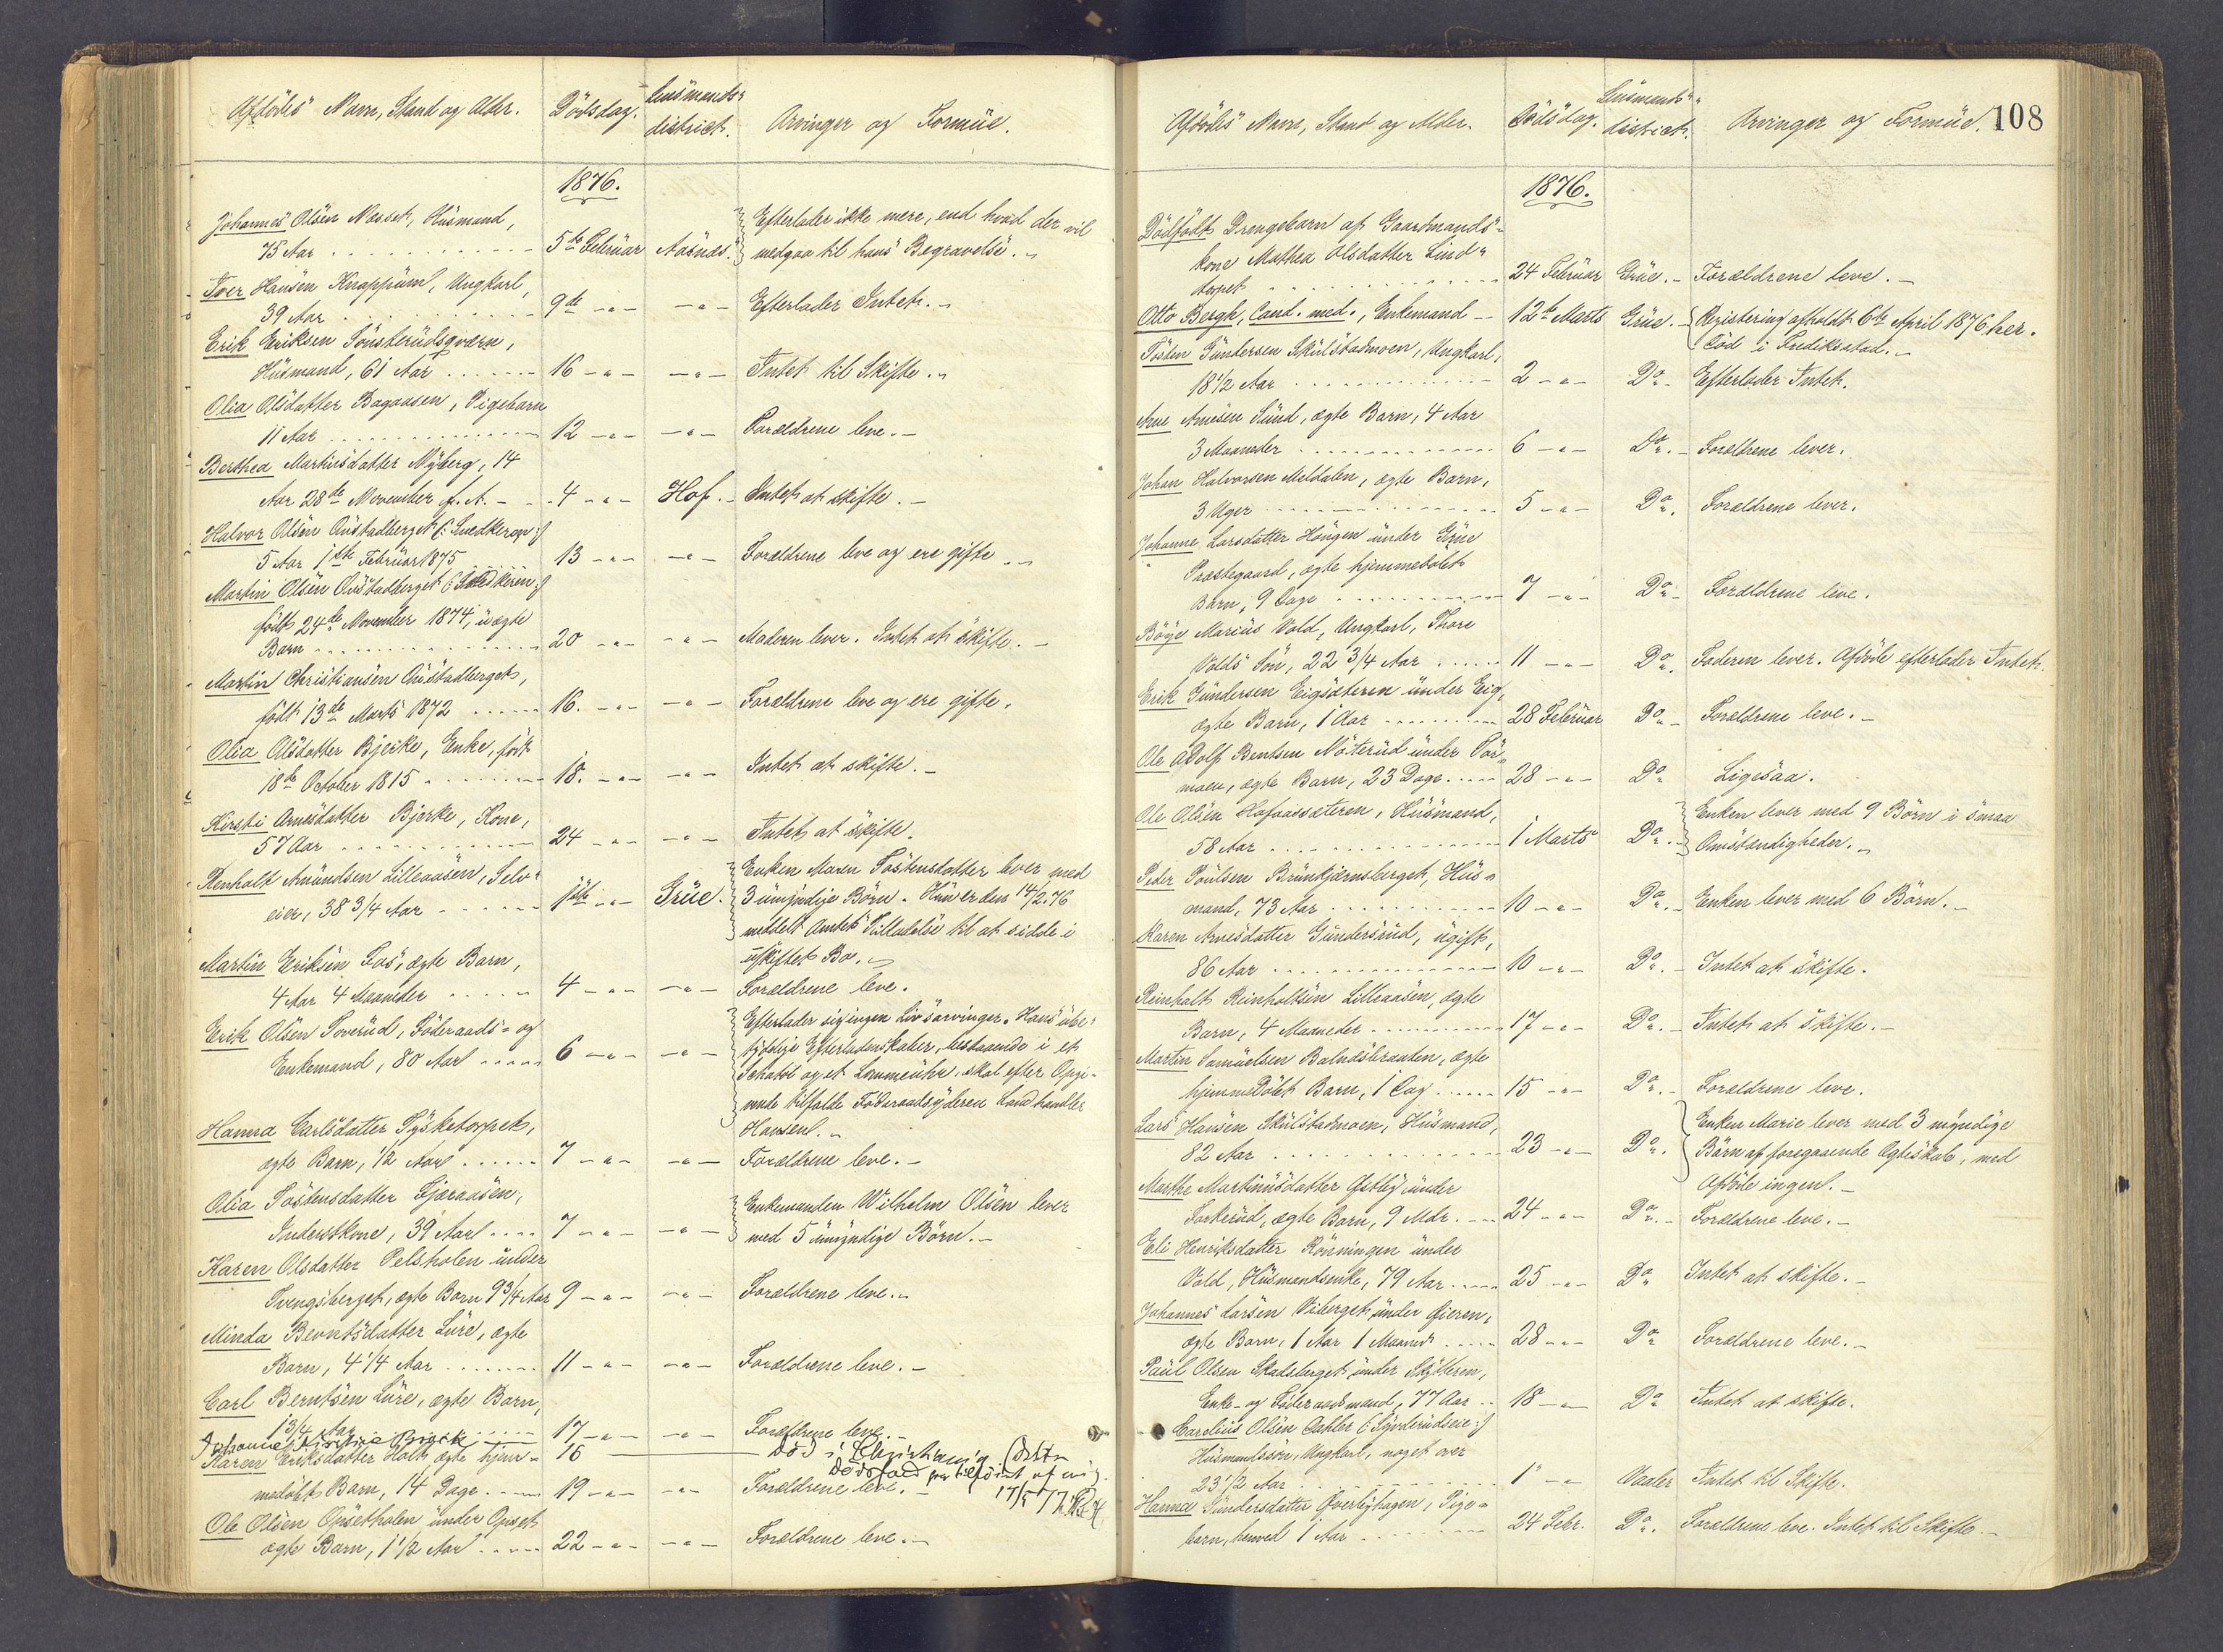 Afdødes Navn, Stand og Alder.
Dødsdag.
Lensmands-
district.
Arvinger og Formue.
1876.
Johannes Olsen Næsset, Husmand,
75 Aar
5te Februar
Aasnes.
Efterlader ikke mere, end hvad der vil
medgaa til hans Begravelse.
Iver Hansen Knappum, Ungkarl,
39 Aar
9de -"-
-"-
Efterlader Intet.
Erik Eriksen Sönsterudsqværn,
Husmand, 61 Aar
16 -"-
-"-
Intet til Skifte.
Olia Olsdatter Bagaasen, Pigebarn
11 Aar
12 -"-
-"-
Forældrene leve.
Berthea Martinsdatter Nyberg, 14
Aar 28de November f. A.
4 -"-
Hof.
Intet at skifte.
Halvor Olsen Austadberget
5 Aar 1ste Februar 1875
13 -"-
-"-
Forældrene leve og ere gifte
Martin Olsen Austadberget
født 24de November 1874, uægte
Barn
20 -"-
-"-
Moderen lever. Intet at skifte.
Martin Christiansen Austadberget,
født 13de Marts 1872
16. -"-
-"-
Forældrene leve og ere gifte.
Olia Olsdatter Bjerke, Enke, født
18de October 1815
18. -"-
-"-
Intet at skifte.
Kirsti Arnesdatter Bjerke, Kone,
57 Aar
24 -"-
-"-
Intet at skifte.
Renholt Amundsen Lilleaasen, Selv-
eier, 38 3/4 Aar
1ste -"-
Grue.
Enken Maren Tostensdatter lever med
3 umyndige Børn. Hun er den 14/2 76
meddelt Amtets Tilladelse til at sidde i
uskiftet Bo.
Martin Eriksen Fos, ægte Barn,
4 Aar 4 Maaneder
4 -"-
-"-
Forældrene leve.
Erik Olsen Toverud, Føderaads- og
Enkemand, 80 Aar
6 -"-
-"-
Efterlader sig ingen Livsarvinger. Hans ube-
tydelige Efterladenskaber, bestaaende i et
Schatol og et Lommeuhr, skal efter Opgi-
vende tilfalde Føderaadsyderen Landhandler
Hansen.
Hanna Carlsdatter Tysketorpet,
ægte Barn, 1/2 Aar
7 -"-
-"-
Forældrene leve.
Olia Tostensdatter Tjæraasen,
Inderstkone, 39 Aar
7 -"-
-"-
Enkemanden Wilhelm Olsen lever
med 5 umyndige Børn.
Karen Olsdatter Pelsholen under
Svengsberget, ægte Barn 9 3/4 Aar
9 -"-
-"-
Forældrene leve.
Minda Berntsdatter Lure, ægte
Barn, 4 1/4 Aar
11 -"-
-"-
Forældrene leve.
Carl Berntsen Lure, ægte Barn,
1 3/4 Aar
17 -"-
-"-
Forældrene leve.
Johanne Kirstine
16
Død i
Dødsfald
17/5
Karen Eriksdatter Holt, ægte hjem-
medøbt Barn, 14 Dage
19 -"-
-"-
Forældrene leve.
Ole Olsen Opsetholen under Opset
ægte Barn, 1 1/2 Aar
22 -"-
-"-
Forældrene leve.
Afdødes Navn, Stand og Alder.
Dødsdag.
Lensmands-
district.
Arvinger og Formue.
108
1876.
Dødfødt Drengebarn af Gaardmands-
kone Mathea Olsdatter Lind-
torpet
24 Februar
Grue.
Forældrene leve.
Otto Bergh, Cand. med., Enkemand
12te Marts
Grue.
Registering afholdt 6te April 1876 her.
Død i Frediksstad.
Tosten Gundersen Skulstadmoen, Ungkarl,
18 1/2 Aar
2 -"-
Do
Efterlader Intet.
Arne Arnesen Sund, ægte Barn, 4 Aar
3 Maaneder
6 -"-
Do
Forældrene lever.
Johan Halvorsen Meldalen, ægte Barn,
3 Uger
5 -"-
Do.
Forældrene lever.
Johanne Larsdatter Haugen under Grue
Præstegaard, ægte hjemmedøbt
Barn, 9 Dage
7 -"-
Do
Forældrene leve.
Böye Marius Vold, Ungkarl, Thore
Volds Søn, 22 3/4 Aar
11 -"-
Do
Faderen lever. Afdøde efterlader Intet.
Erik Gundersen Eigsæteren under Eig,
ægte Barn, 1 Aar
28 Februar
Do
Forældrene leve.
Ole Adolf Bentsen Nöterud under Tör-
moen, ægte Barn, 23 Dage
28 -"-
Do
Ligesaa.
Ole Olsen Hafaassæteren, Husmand,
58 Aar
1 Marts
Do
Enken lever med 9 Børn i smaa
Omstændigheder.
Peder Poulsen Brunkjærnsberget, Hus-
mand, 73 Aar
10 -"-
Do
Enken lever med 6 Børn.
Karen Arnesdatter Gundersrud, ugift,
86 Aar
10 -"-
Do
Intet at skifte.
Reinholt Reinholtsen Lilleaasen, ægte
Barn, 4 Maaneder
17 -"-
Do
Intet at skifte.
Martin Samuelsen Balnäsbraaten, ægte
hjemmedøbt Barn, 1 Dag
15 -"-
Do
Forældrene leve.
Lars Hansen Skulstadmoen, Husmand,
82 Aar
23 -"-
Do.
Enken Marie lever med 3 myndige
Børn af foregaaende Ægteskab, med
Afdøde ingen.
Marthe Martinusdatter Østby under
Torkerud, ægte Barn, 9 Mdr.
24 -"-
Do
Forældrene leve.
Eli Henriksdatter Rönningen under
Vold, Husmandsenke, 79 Aar
25 -"-
Do
Intet at skifte.
Johannes Larsen Viberget under Gjeren,
ægte Barn, 1 Aar 1 Maaned
28 -"-
Do
Forældrene leve.
Paul Olsen Skadsberget under Skytteren,
Enke- og Føderaadsmand, 77 Aar
18 -"-
Do
Intet at skifte.
Carelius Olsen Dahler
Husmandssøn, Ungkarl, noget over
23 1/2 Aar
1 -"-
Vaaler
Intet til Skifte.
Hanna Gundersdatter Øverbyhagen, Pige-
barn, henved 1 Aar
24 Febr.
Do.
Forældrene leve. Intet til Skifte.